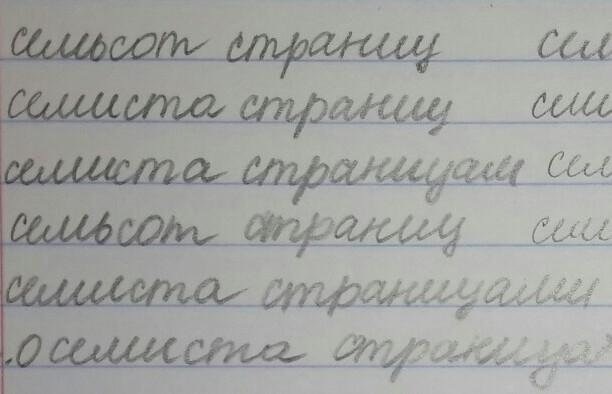 семьсот страниц сем
семиста страниц
семиста страницам сем
семьсот страниц
семиста страницами
.о семиста страница